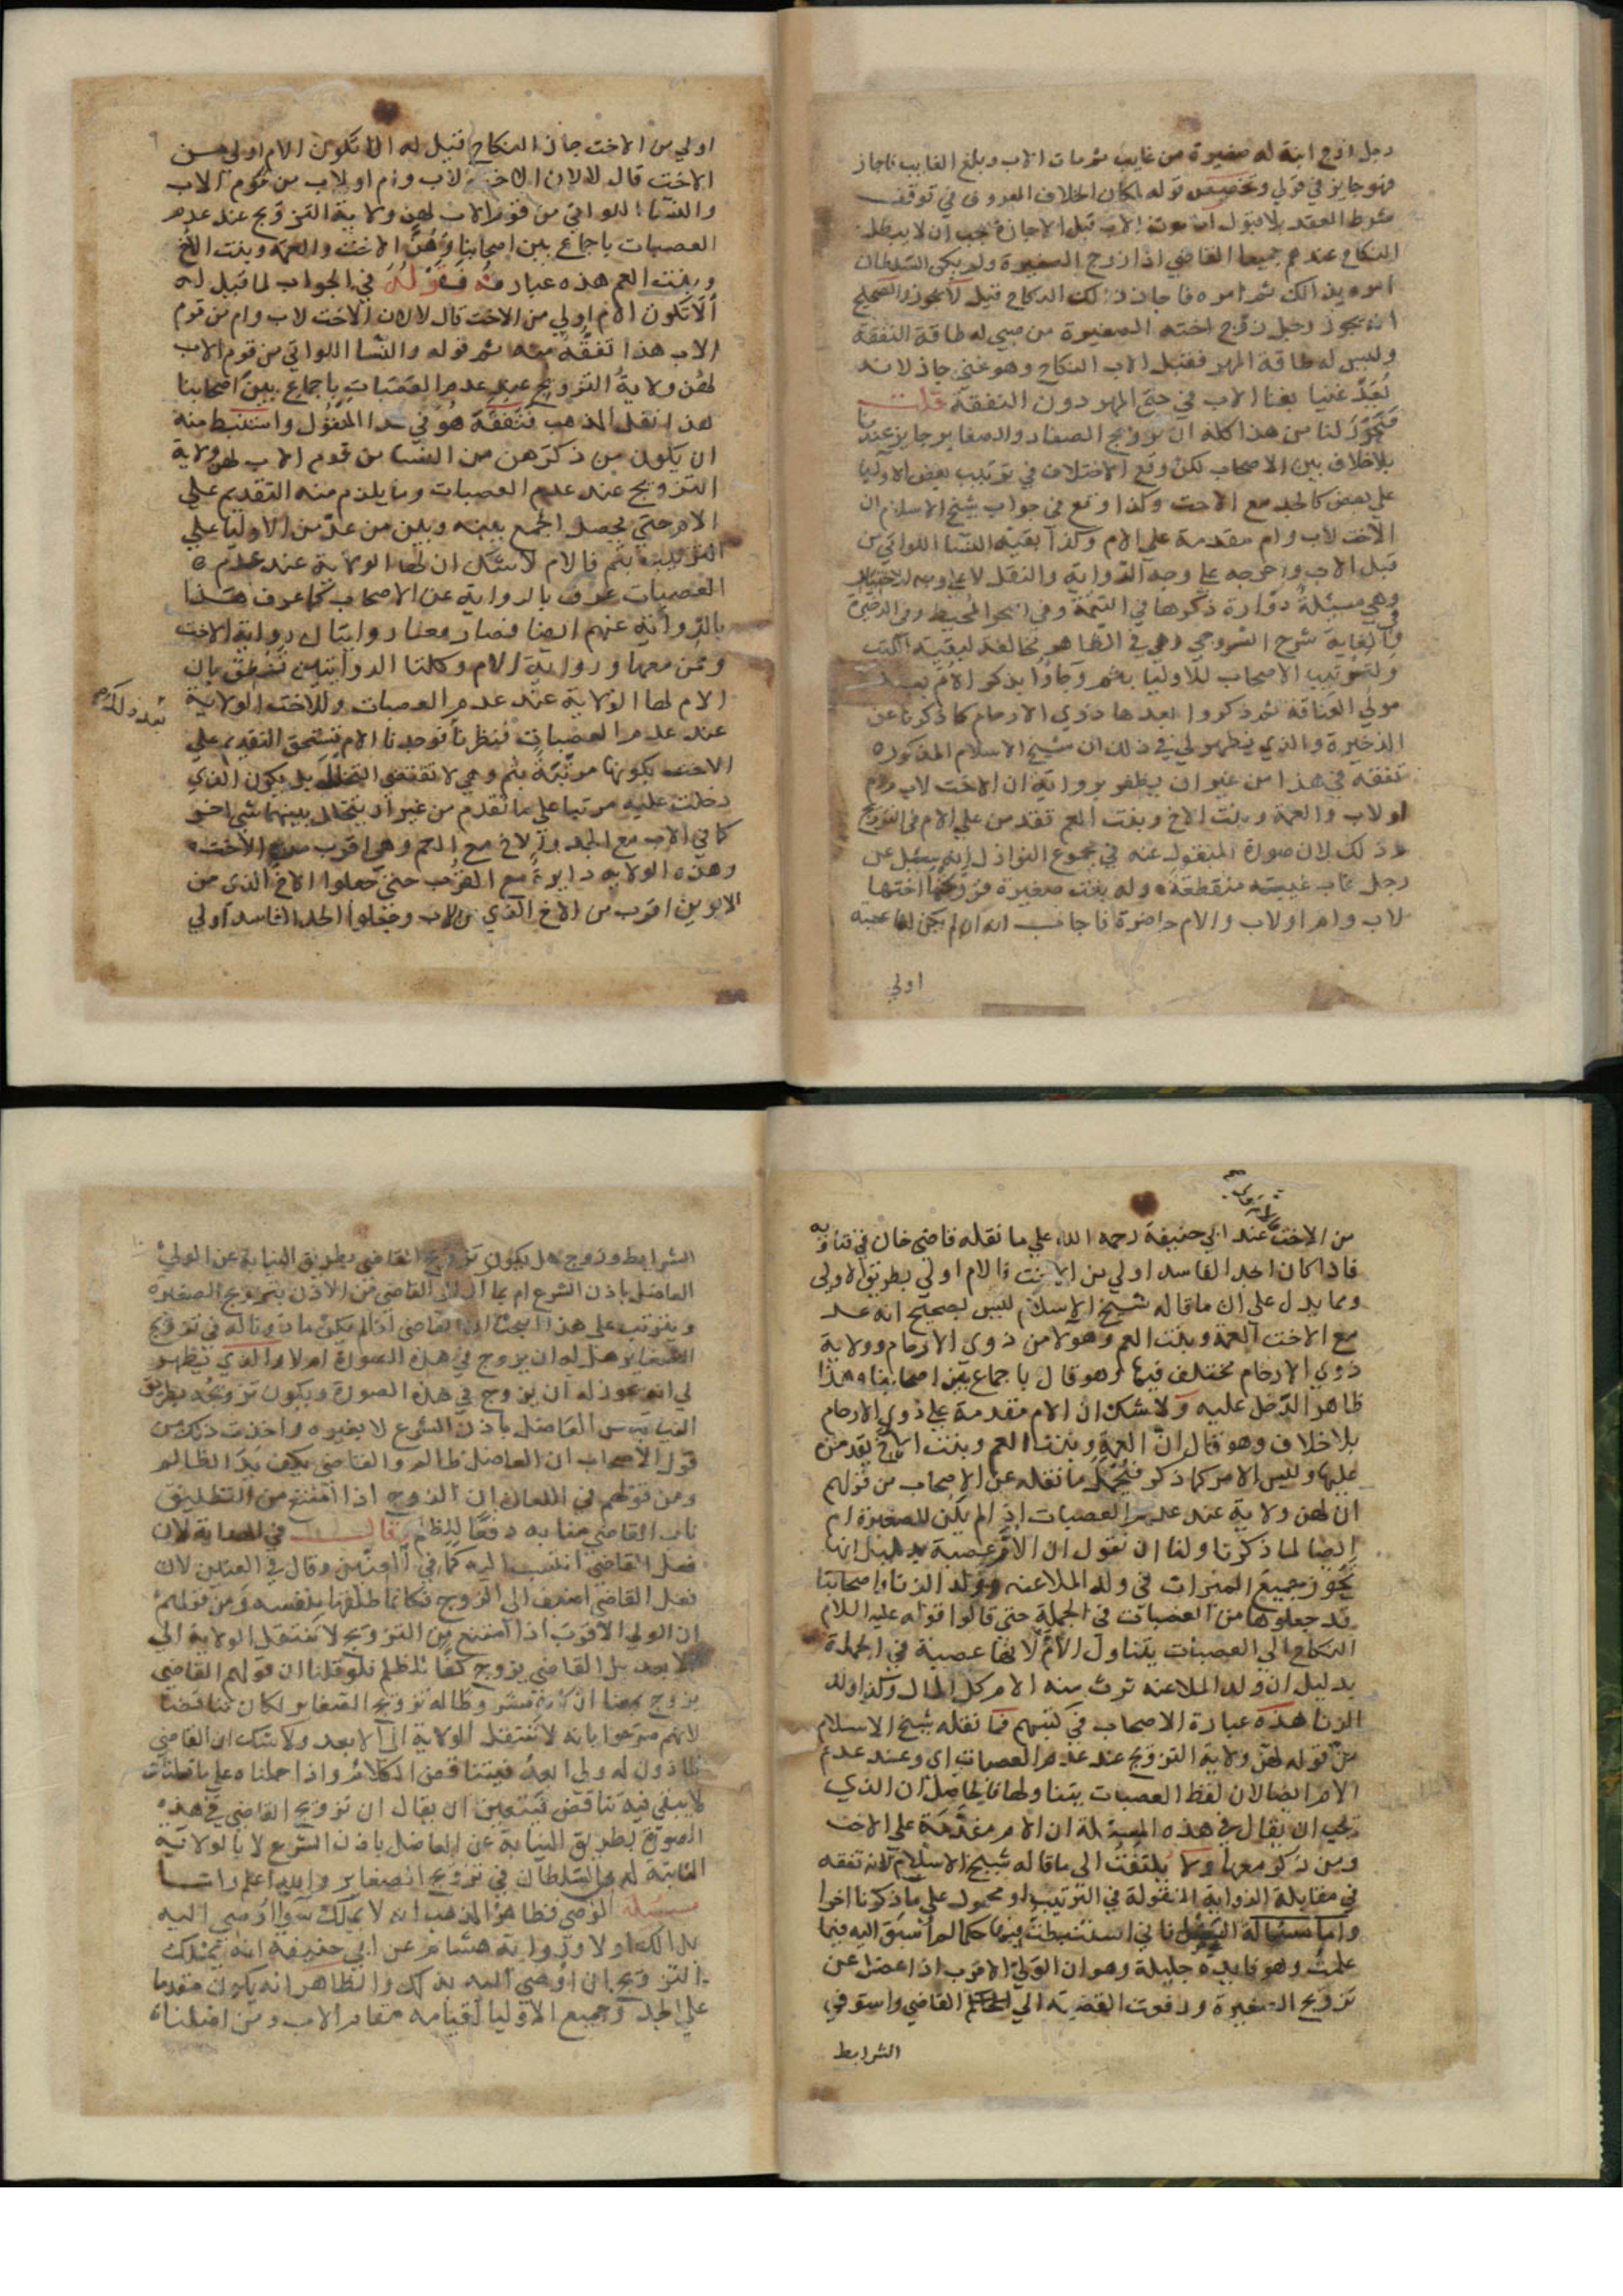 رجل زوج ابنة له صغيرة من غايب ثم مات الاب وبلغ الغايب فاجاز
فهو جايز في قولي وتخصيص قوله لمكان الخلاف المعروف في توقف
شرط العقد بلا قبول اما موت الاب قبل الاجازة يجب ان لا يبطل
النكاح عندهم جميعا القاضي اذا زوج الصغيرة ولم يكن السلطان
امره بذالك ثم امره فاجاز ذلك النكاح قيل لا يجوز والصحيح
انه يجوز رجل زوج اخته الصغيرة من صبي له طاقة النفقة
وليس له طاقة المهر فقبل الاب النكاح وهو غني جاز لانه
يُعَدّ غنيا بغنا الاب في حق المهر دون النفقة قلت
فتحرّر لنا من هذا كله ان تزويج الصغار والصغاير جايز عندنا
بلا خلاف بين الاصحاب لكن وقع الاختلاف في ترتيب بعض الاوليا
علي بعض كالجد مع الاخت وكذا وقع في جواب شيخ الاسلام ان
الاخت لاب وام مقدمة علي الام وكذا بقية النسا اللواتي من
قبل الاب واخرجه علي وجه الرواية والنقل لا علي وجه الاختيار
وهي مسئلة دوّارة ذكرها في التتمة وفي البحر المحيط وفي الذخيرة
وفي الغاية شرح السروجي وهي في الظاهر مخالفة لبقية الكتب
ولترتيب الاصحاب للاوليا بعثم وجاؤا بذكر الام بعد
مولي العتاقة ثم ذكروا بعدها ذوي الارحام كما ذكرنا عن
الذخيرة والذي يظهر لي في ذلك ان شيخ الاسلام المذكور
تفقه في هذا من غير ان يظفر برواية ان الاخت لاب وام
او لاب والعمة وبنت الاخ وبنت العم تقدمن علي الام في التزويج
وذلك لان صورة المنقول عنه في مجموع النوازل انه سئل عن
رجل غاب غيبته منقطعة وله بنت صغيرة فزوجتها اختها
لاب وام او لاب والام حاضرة فاجاب انه ان لم يكن لها عصبة
اولي
اولي من الاخت جاز النكاح فقيل له الا تكون الام اولي من
الاخت قال لا لان الاخت لاب وام او لاب من قوم الاب
والنسا اللواتي من قوم الاب لهن ولاية التزويج عند عدم
العصبات باجماع بين اصحابنا وهُنَّ الاخت والعمة وبنت الاخ
وبنت العم هذه عبارته فقوله في الجواب لما قيل له
ألا تكون الام اولي من الاخت قال لا لان الاخت لاب وام من قوم
الاب هذا تفقّه منه ثم قوله والنسا اللواتي من قوم الاب
لهن ولاية التزويج عند عدم العصبات باجماع بين اصحابنا
هذا نقل المذهب فتفقه هو في هذا المنقول واستنبط منه
ان يكون من ذكرهن من النسا من قوم الاب لهن ولاية
التزويج عند عدم العصبات وما يلزم منه التقديم علي
الام حتي يحصل الجمع بينه وبين من عدّ من الاوليا علي
الترتيب بثم فالام لا شك ان لها الولاية عند عدم
العصبات عرف بالرواية عن الاصحاب كما عرف هذا
بالرواية عنهم ايضا فصار معنا روايتان رواية الاخت
ومن معها ورواية الام وكلتا الروايتين تنطق بان
الام لها الولاية عند عدم العصبات وللاخت الولاية
بعد ذلك
عند عدم العصبات فنظرنا فوجدنا الام تستحق التقديم علي
الاخت بكونها مرتبة بثم وهي لا تقتضي التخلل بل يكون الذي
دخلت عليه مرتبا علي ما تقدم من غير ان يتخلل بينهما شي اخر
كما في الاب مع الجد والاخ مع العم وهي اقرب من الاخت
وهذه الولاية دايرة مع القرب حتي جعلوا الاخ الذي من
الابوين اقرب من الاخ الذي للاب وجعلوا الجد الفاسد اولي
من الاخت عند ابي حنيفة رحمه الله علي ما نقله قاضي خان في فتاويه
فاذا كان الجد الفاسد اولي من الاخت فالام اولي بطريق الاولي
ومما يدل علي ان ما قاله شيخ الاسلام ليس بصحيح انه عد
مع الاخت العمة وبنت العم وهولا من ذوي الارحام وولاية
ذوي الارحام مختلف فيها وهو قال باجماع بين اصحابنا وهذا
ظاهر الدخل عليه ولا شك ان الام مقدمة علي ذوي الارحام
بلا خلاف وهو قال ان العمة وبنت العم وبنت الاخ يقدمن
عليها وليس الامر كما ذكر فيُحمل ما نقله عن الاصحاب من قولهم
ان لهن ولاية عند عدم العصبات اذا لم يكن للصغيرة ام
ايضا لما ذكرنا ولنا ان نقول ان الام عصبة بدليل انها
تحوز جميع الميراث في ولد الملاعنة وولد الزنا واصحابنا
قد جعلوها من العصبات في الجملة حتي قالوا قوله عليه السلام
النكاح الي العصبات يتناول الام لانها عصبة في الجملة
بدليل ان ولد الملاعنة ترث منه الام كل المال وكذا ولد
الزنا هذه عبارة الاصحاب في كتبهم فما نقله شيخ الاسلام
من قوله لهن ولاية التزويج عند عدم العصبات اي وعند عدم
الام ايضا لان لفظ العصبات يتناولها فالحاصل ان الذي
يجب ان يقال في هذه المسئلة ان الام مقدّمة علي الاخت
ومن ذكر معها ولا يُلتفت الي ما قاله شيخ الاسلام لانه تفقه
في مقابلة الرواية المنقولة في الترتيب او محمول علي ما ذكرنا اخرا
واما مسئلة العضل فاني استنبطت فيها حكما لم اُسبق اليه فيما
علمت وهو فايدة جليلة وهو ان الولي الاقرب اذا عضل عن
تزويج الصغيرة ورفعت القضية الي القاضي واستوفي
الشرايط
الشرايط وزوج هل يكون تزويج القاضي بطريق النيابة عن الولي
العاضل باذن الشرع ام بما ان القاضي من الاذن بتزويج الصغيرة
ويترتب علي هذا البحث ان القاضي اذا لم يكن ماذونا له في تزويج
الصغاير هل له ان يزوج في هذه الصورة ام لا والذي يظهر
لي انه يجوز له ان يزوج في هذه الصورة ويكون تزويجه بطريق
النيابة من العاضل باذن الشرع لا بغيره واخذت ذلك من
قول الاصحاب ان العاضل ظالم والقاضي يكف يد الظالم
ومن قولهم في اللعان ان الزوج اذا امتنع من التطليق
ناب القاضي منابه دفعًا للظلم قال في الهداية لان
فعل القاضي انتسب اليه كما في العنين وقال في العنين لان
فعل القاضي اضيف الي الزوج فكانما طلقها بنفسه ومن قولهم
ان الولي الاقرب اذا امتنع من التزويج لا تنتقل الولاية الي
الابعد بل القاضي يزوج كفًا للظلم فلو قلنا ان قولهم القاضي
يزوج معنا ان كان مشروطا له تزويج الصغاير لكان تناقضا
لانهم صرحوا بانه لا تنتقل الولاية الي الابعد ولا شك ان القاضي
الماذون له ولي ابعد فيتناقض الكلام واذا حملناه علي ما قلنا
لا يبقي فيه تناقض فيتعين ان يقال ان تزويج القاضي في هذه
الصورة بطريق النيابة عن العاضل باذن الشرع لا بالولاية
الثابتة له من السلطان في تزويج الصغاير والله اعلم واما
مسئلة الوصي فظاهر المذهب انه لا يملك سوا اوصي اليه
بذالك اولا ورواية هشام عن ابي حنيفة انه يملك
التزويج ان اوصي اليه بذلك والظاهر انه يكون مقدما
علي الجد وجميع الاوليا لقيامه مقام الاب ومن افضلناه